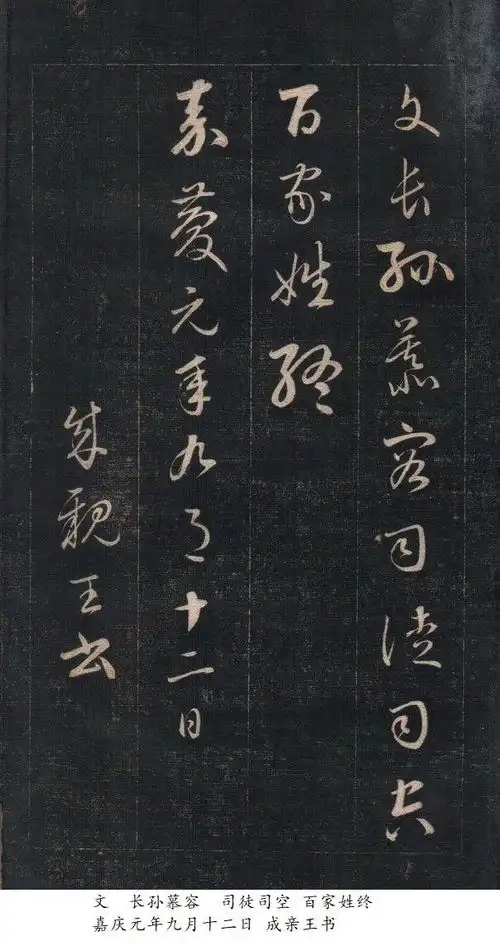 文长孙慕容司徒司空
百家姓终
嘉庆元年九月十二日
成亲王书
文 长孙慕容 司徒司空 百家姓终
嘉庆元年九月十二日 成亲王书